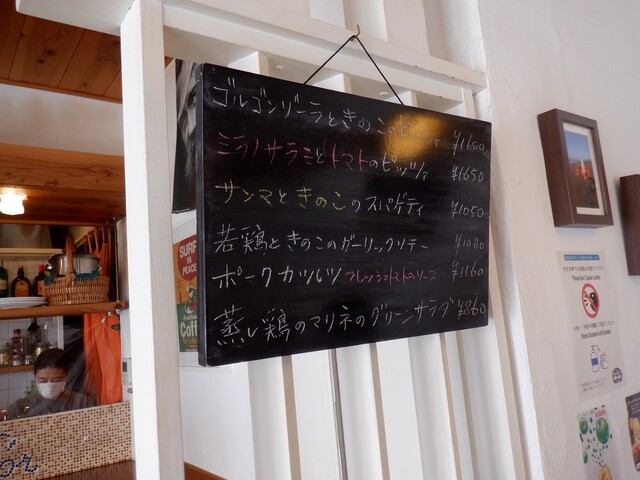 ゴルゴンゾーラときのこのピッツァ ¥1600
ミラノサラミとトマトのピッツァ ¥1650
サンマときのこのスパゲティ ¥1050
若鶏ときのこのガーリックソテー ¥1080
ポークカツレツ フレッシュトマトのソース ¥1160
蒸し鶏のマリネのグリーンサラダ ¥860
SURF
IN
PEACE
Coffee
Please Don't Speak Loudly